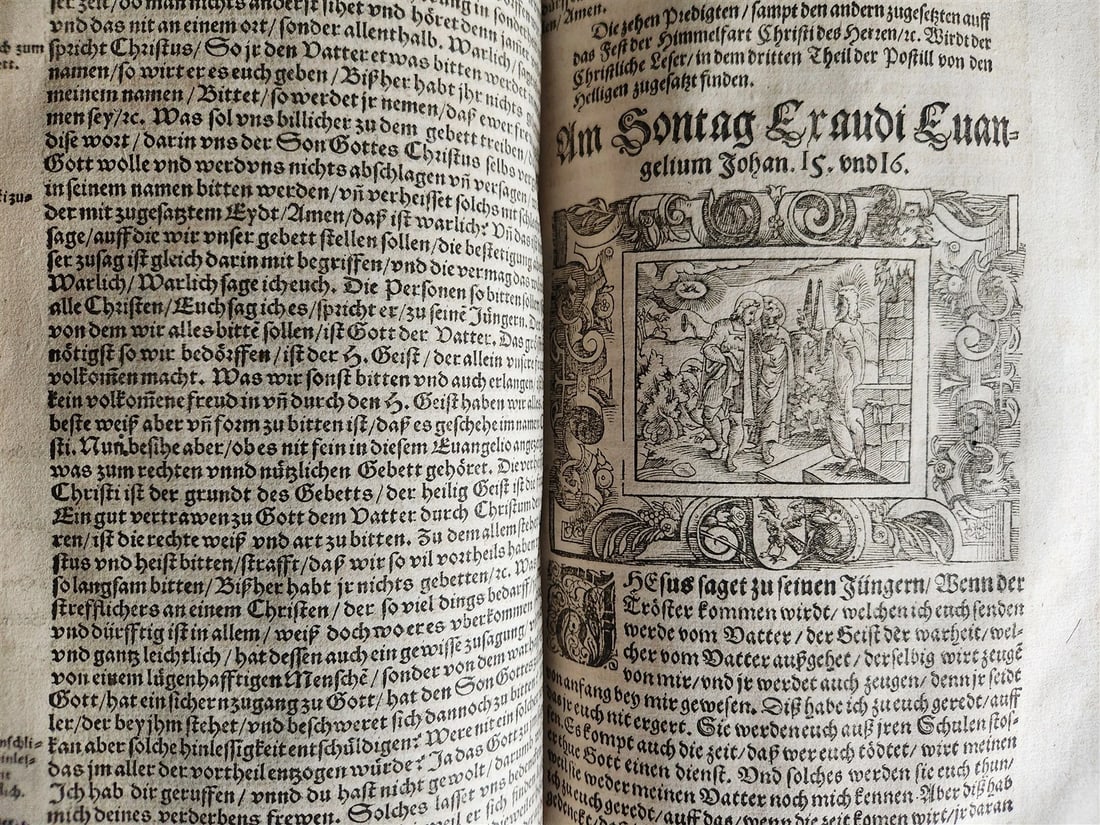 ser zeit/do man nichts anderst sihet vnd höret denn jamer
vnd das nit an einem ort/sonder allenthalb. Warlich/sage
spricht Christus/So jr den Vatter etwas bitten werdet
namen/so wirt er es euch geben/Bißher habt jhr nichts
meinem namen/Bittet/so werdet jr nemen/daß ewer freud
men sey/rc. Was sol vns billicher zu dem gebett treiben/
dise wort/darin vns der Son Gottes Christus selbs
Gott wolle vnd werd vns nichts abschlagen vñ versagen/
in seinem namen bitten werden/vñ verheisset solchs mit
der mit zugesatztem Eydt/Amen/daß ist warlich? Vñ das
sage/auff die wir vnser gebett stellen sollen/die bestetigung
ser zusag ist gleich darin mit begriffen/vnd die vermag das
Warlich/Warlich sage ich euch. Die Personen so bitten
alle Christen/Euch sag ich es/spricht er/zu seinē Jüngern.
von dem wir alles bittē sollen/ist Gott der Vatter. Das
nötigst so wir bedörffen/ist der H. Geist/der allein
volkom̄en macht. Was wir sonst bitten vnd auch erlangen
kein volkom̄ene freud in vñ durch den H. Geist haben wir
beste weiß aber vñ form zu bitten ist/daß es geschehe im
sti. Nun besihe aber/ob es nit fein in diesem Euangelio
was zum rechten vnnd nützlichen Gebett gehöret. Die
Christi ist der grundt des Gebetts/der heilig Geist ist die
Ein gut vertrawen zu Gott dem Vatter durch Christum
ren/ist die rechte weiß vnd art zu bitten. Zu dem allem
stus vnd heist bitten/strafft/daß wir so vil vortheils haben
so langsam bitten/Bißher habt jr nichts gebetten/rc. Was
strefflichers an einem Christen/der so viel dings bedarff/
vnd dürfftig ist in allem/weiß doch wo er es vberkommen
vnd gantz leichtlich/hat dessen auch ein gewisse zusagung/
von einem lügenhafftigen Menschē/sonder von dem
Gott/hat ein sichern zugang zu Gott/hat den Son Gottes
ler/der bey jhm stehet/vnd beschweret sich dannoch zu bitten
kan aber solche hinlessigkeit entschüldigen? Were mit ein solcher
das jm aller der vortheil entzogen würde? Ja das Gott
Ich hab dir geruffen/vnnd du hast nicht gewolt/
mich deines verderbens frewen. Solches lasset vns
Amen.
Die zehen Predigten/sampt den andern zugesetzten auff
das Fest der Himmelfart Christi des Herren/rc. Wirdt der
Christliche Leser/in dem dritten Theil der Postill von den
Heiligen zugesatzt finden.
Am Sontag Exaudi Euan-
gelium Johan. 15. vnd 16.
JHEsus saget zu seinen Jüngern/Wenn der
Tröster kommen wirdt/welchen ich euch senden
werde vom Vatter/der Geist der warheit/wel-
cher vom Vatter außgehet/derselbig wirt zeugē
von mir/vnd jr werdet auch zeugen/denn jr seidt
von anfang bey mir gewesen. Diß habe ich zu euch geredt/auff
das jr euch nit ergert. Sie werden euch auß jren Schulen stos-
sen. Es kompt auch die zeit/daß wer euch tödtet/wirt meinen
er thue Gott einen dienst. Vnd solches werden sie euch thun/
weil sie weder meinen Vatter noch mich kennen. Aber diß hab
ich zu euch geredt/auff das/wenn die zeit komen wirt/jr daran